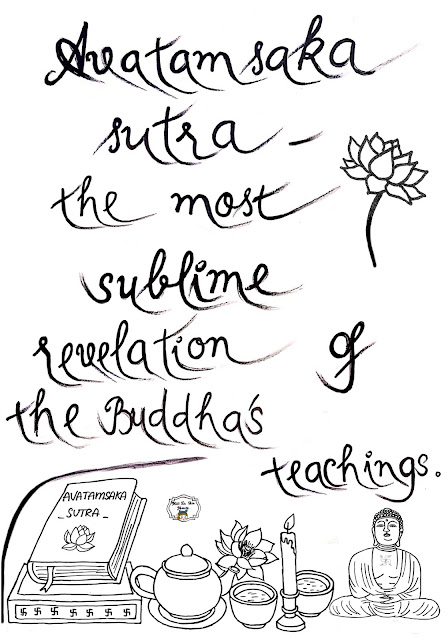 Avatamsaka
sutra -
the most
sublime
revelation of
the Buddha's
teachings.
AVATAMSAKA
_ SUTRA _